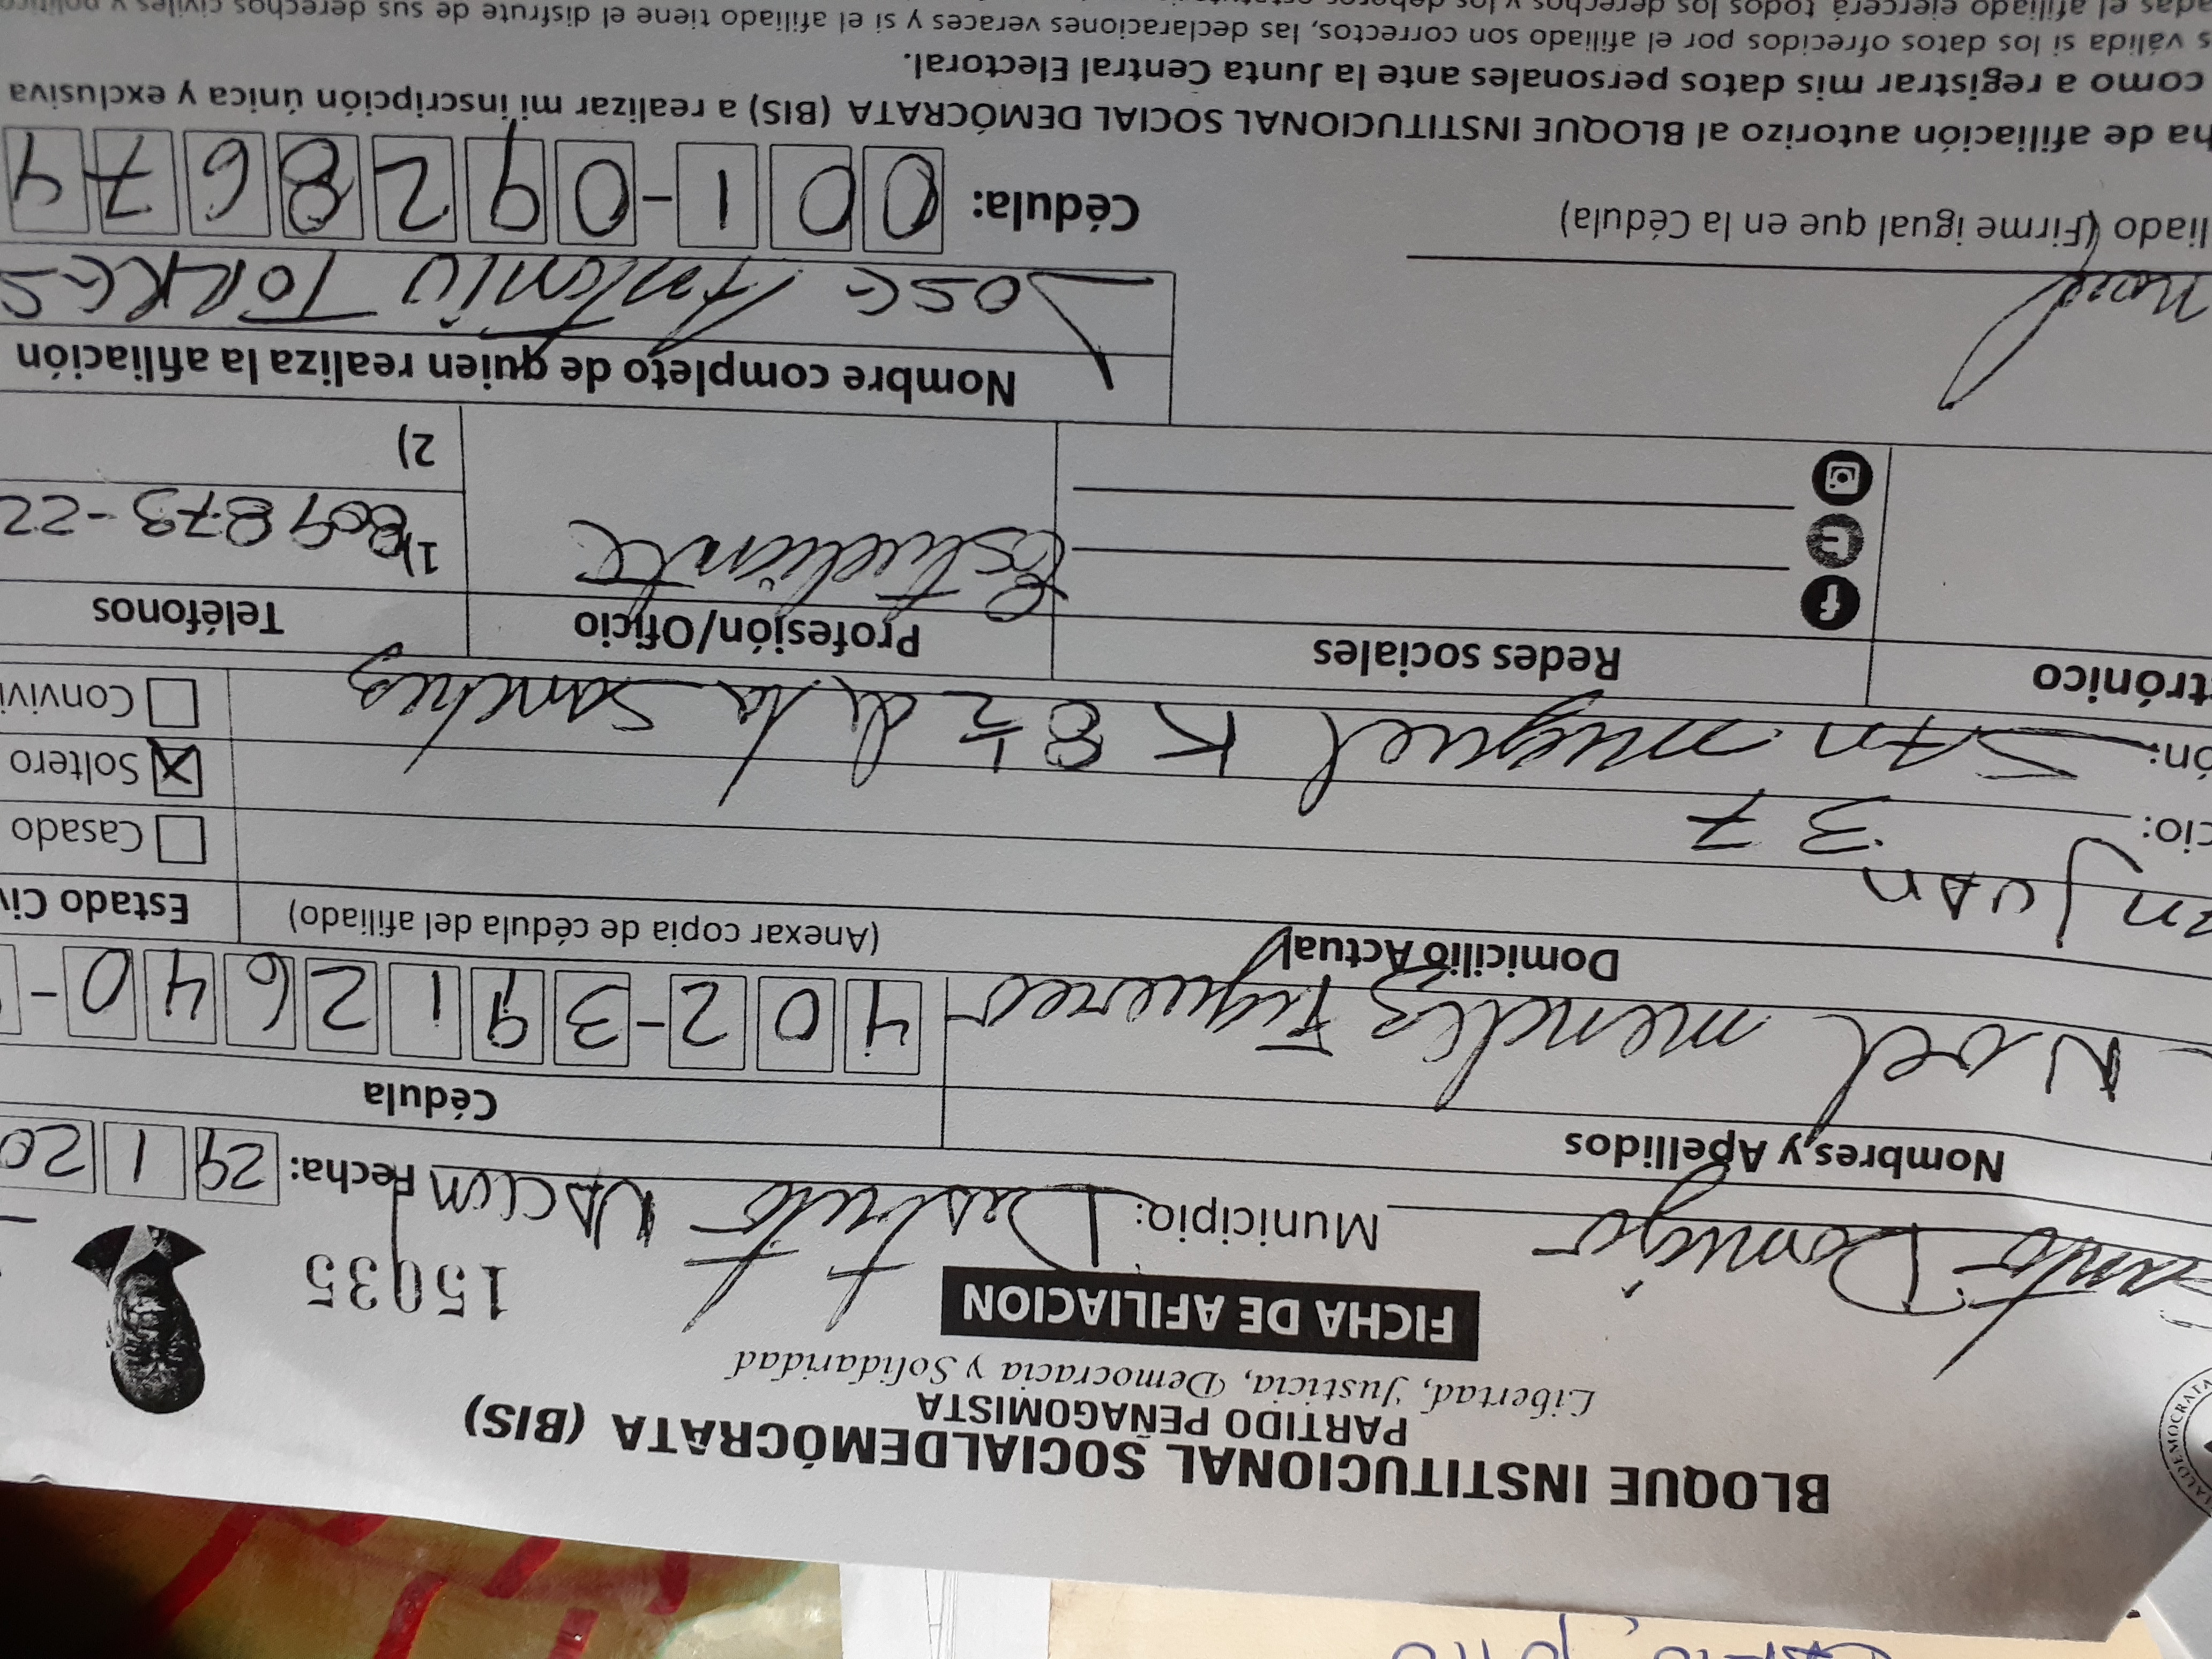 BLOQUE INSTITUCIONAL SOCIALDEMÓCRATA (BIS)
PARTIDO PEÑAGOMISTA
Libertad, Justicia, Democracia y Solidaridad
FICHA DE AFILIACION
15035
Domingo Municipio: Distrito Fecha: 29 1 20
Nombres y Apellidos Cédula
Noel mendez Figuereo 402-3912640-
Domicilio Actual (Anexar copia de cédula del afiliado) Estado Civ
Juan Casado
cio: 37 Soltero
ón: San miguel K 8 1/2 de la sanchez Convivi
trónico Redes sociales Profesión/Oficio Teléfonos
Estudiante 1) 809 873-22
2)
Nombre completo de quien realiza la afiliación
Noel Jose Antonio TORRES
liado (Firme igual que en la Cédula) Cédula: 001-0928674
ha de afiliación autorizo al BLOQUE INSTITUCIONAL SOCIAL DEMÓCRATA (BIS) a realizar mi inscripción única y exclusiva
como a registrar mis datos personales ante la Junta Central Electoral.
s válida si los datos ofrecidos por el afiliado son correctos, las declaraciones veraces y si el afiliado tiene el disfrute de sus derechos civiles y político
adas el afiliado ejercerá todos los derechos y los deberes